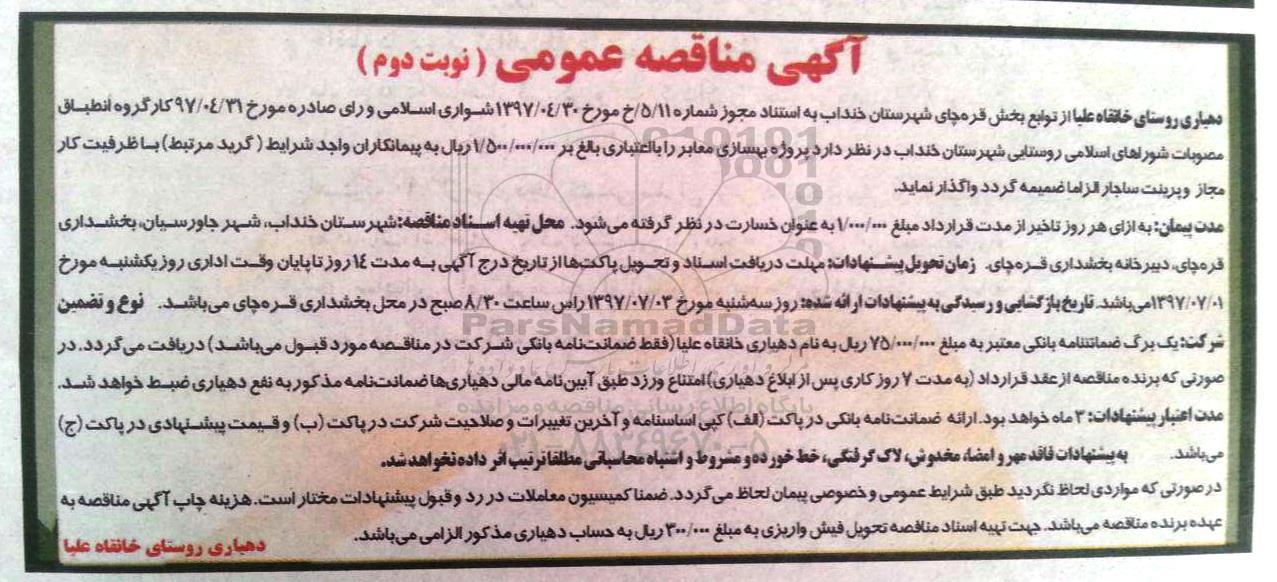 آگهی مناقصه عمومی ( نوبت دوم )
دهیاری روستای خانقاه علیا از توابع بخش قره‌چای شهرستان خنداب به استناد مجوز شماره ۵/۱۱/خ مورخ ۱۳۹۷/۰۴/۳۰ شواری اسلامی و رای صادره مورخ ۹۷/۰۴/۳۱ کارگروه انطباق
مصوبات شوراهای اسلامی روستایی شهرستان خنداب در نظر دارد پروژه بهسازی معابر را بااعتباری بالغ بر ۱/۵۰۰/۰۰۰/۰۰۰ ریال به پیمانکاران واجد شرایط ( گرید مرتبط) با ظرفیت کار
مجاز و پرینت ساجار الزاما ضمیمه گردد واگذار نماید.
مدت پیمان: به ازای هر روز تاخیر از مدت قرارداد مبلغ ۱/۰۰۰/۰۰۰ به عنوان خسارت در نظر گرفته می‌شود. محل تهیه اسناد مناقصه: شهرستان خنداب، شهر جاورسیان، بخشداری
قره‌چای، دبیرخانه بخشداری قره‌چای. زمان تحویل پیشنهادات: مهلت دریافت اسناد و تحویل پاکت‌ها از تاریخ درج آگهی به مدت ۱۴ روز تا پایان وقت اداری روز یکشنبه مورخ
۱۳۹۷/۰۷/۰۱ می‌باشد. تاریخ بازگشایی و رسیدگی به پیشنهادات ارائه شده: روز سه‌شنبه مورخ ۱۳۹۷/۰۷/۰۳ راس ساعت ۸/۳۰ صبح در محل بخشداری قره‌چای می‌باشد. نوع و تضمین
شرکت: یک برگ ضمانتنامه بانکی معتبر به مبلغ ۷۵/۰۰۰/۰۰۰ ریال به نام دهیاری خانقاه علیا (فقط ضمانت‌نامه بانکی شرکت در مناقصه مورد قبول می‌باشد) دریافت می‌گردد. در
صورتی که برنده مناقصه از عقد قرارداد (به مدت ۷ روز کاری پس از ابلاغ دهیاری) امتناع ورزد طبق آیین نامه مالی دهیاری‌ها ضمانت‌نامه مذکور به نفع دهیاری ضبط خواهد شد.
مدت اعتبار پیشنهادات: ۳ ماه خواهد بود. ارائه ضمانت‌نامه بانکی در پاکت (الف) کپی اساسنامه و آخرین تغییرات و صلاحیت شرکت در پاکت (ب) و قیمت پیشنهادی در پاکت (ج)
می‌باشد. به پیشنهادات فاقد مهر و امضاء، مخدوش، لاک گرفتگی، خط خورده و مشروط و اشتباه محاسباتی مطلقا ترتیب اثر داده نخواهد شد.
در صورتی که مواردی لحاظ نگردید طبق شرایط عمومی و خصوصی پیمان لحاظ می‌گردد. ضمنا کمیسیون معاملات در رد و قبول پیشنهادات مختار است. هزینه چاپ آگهی مناقصه به
عهده برنده مناقصه می‌باشد. جهت تهیه اسناد مناقصه تحویل فیش واریزی به مبلغ ۳۰۰/۰۰۰ ریال به حساب دهیاری مذکور الزامی می‌باشد.
دهیاری روستای خانقاه علیا
ParsNamadData
پایگاه اطلاع رسانی مناقصه و مزایده
۰۲۱-۸۸۳۴۹۶۷۰-۵